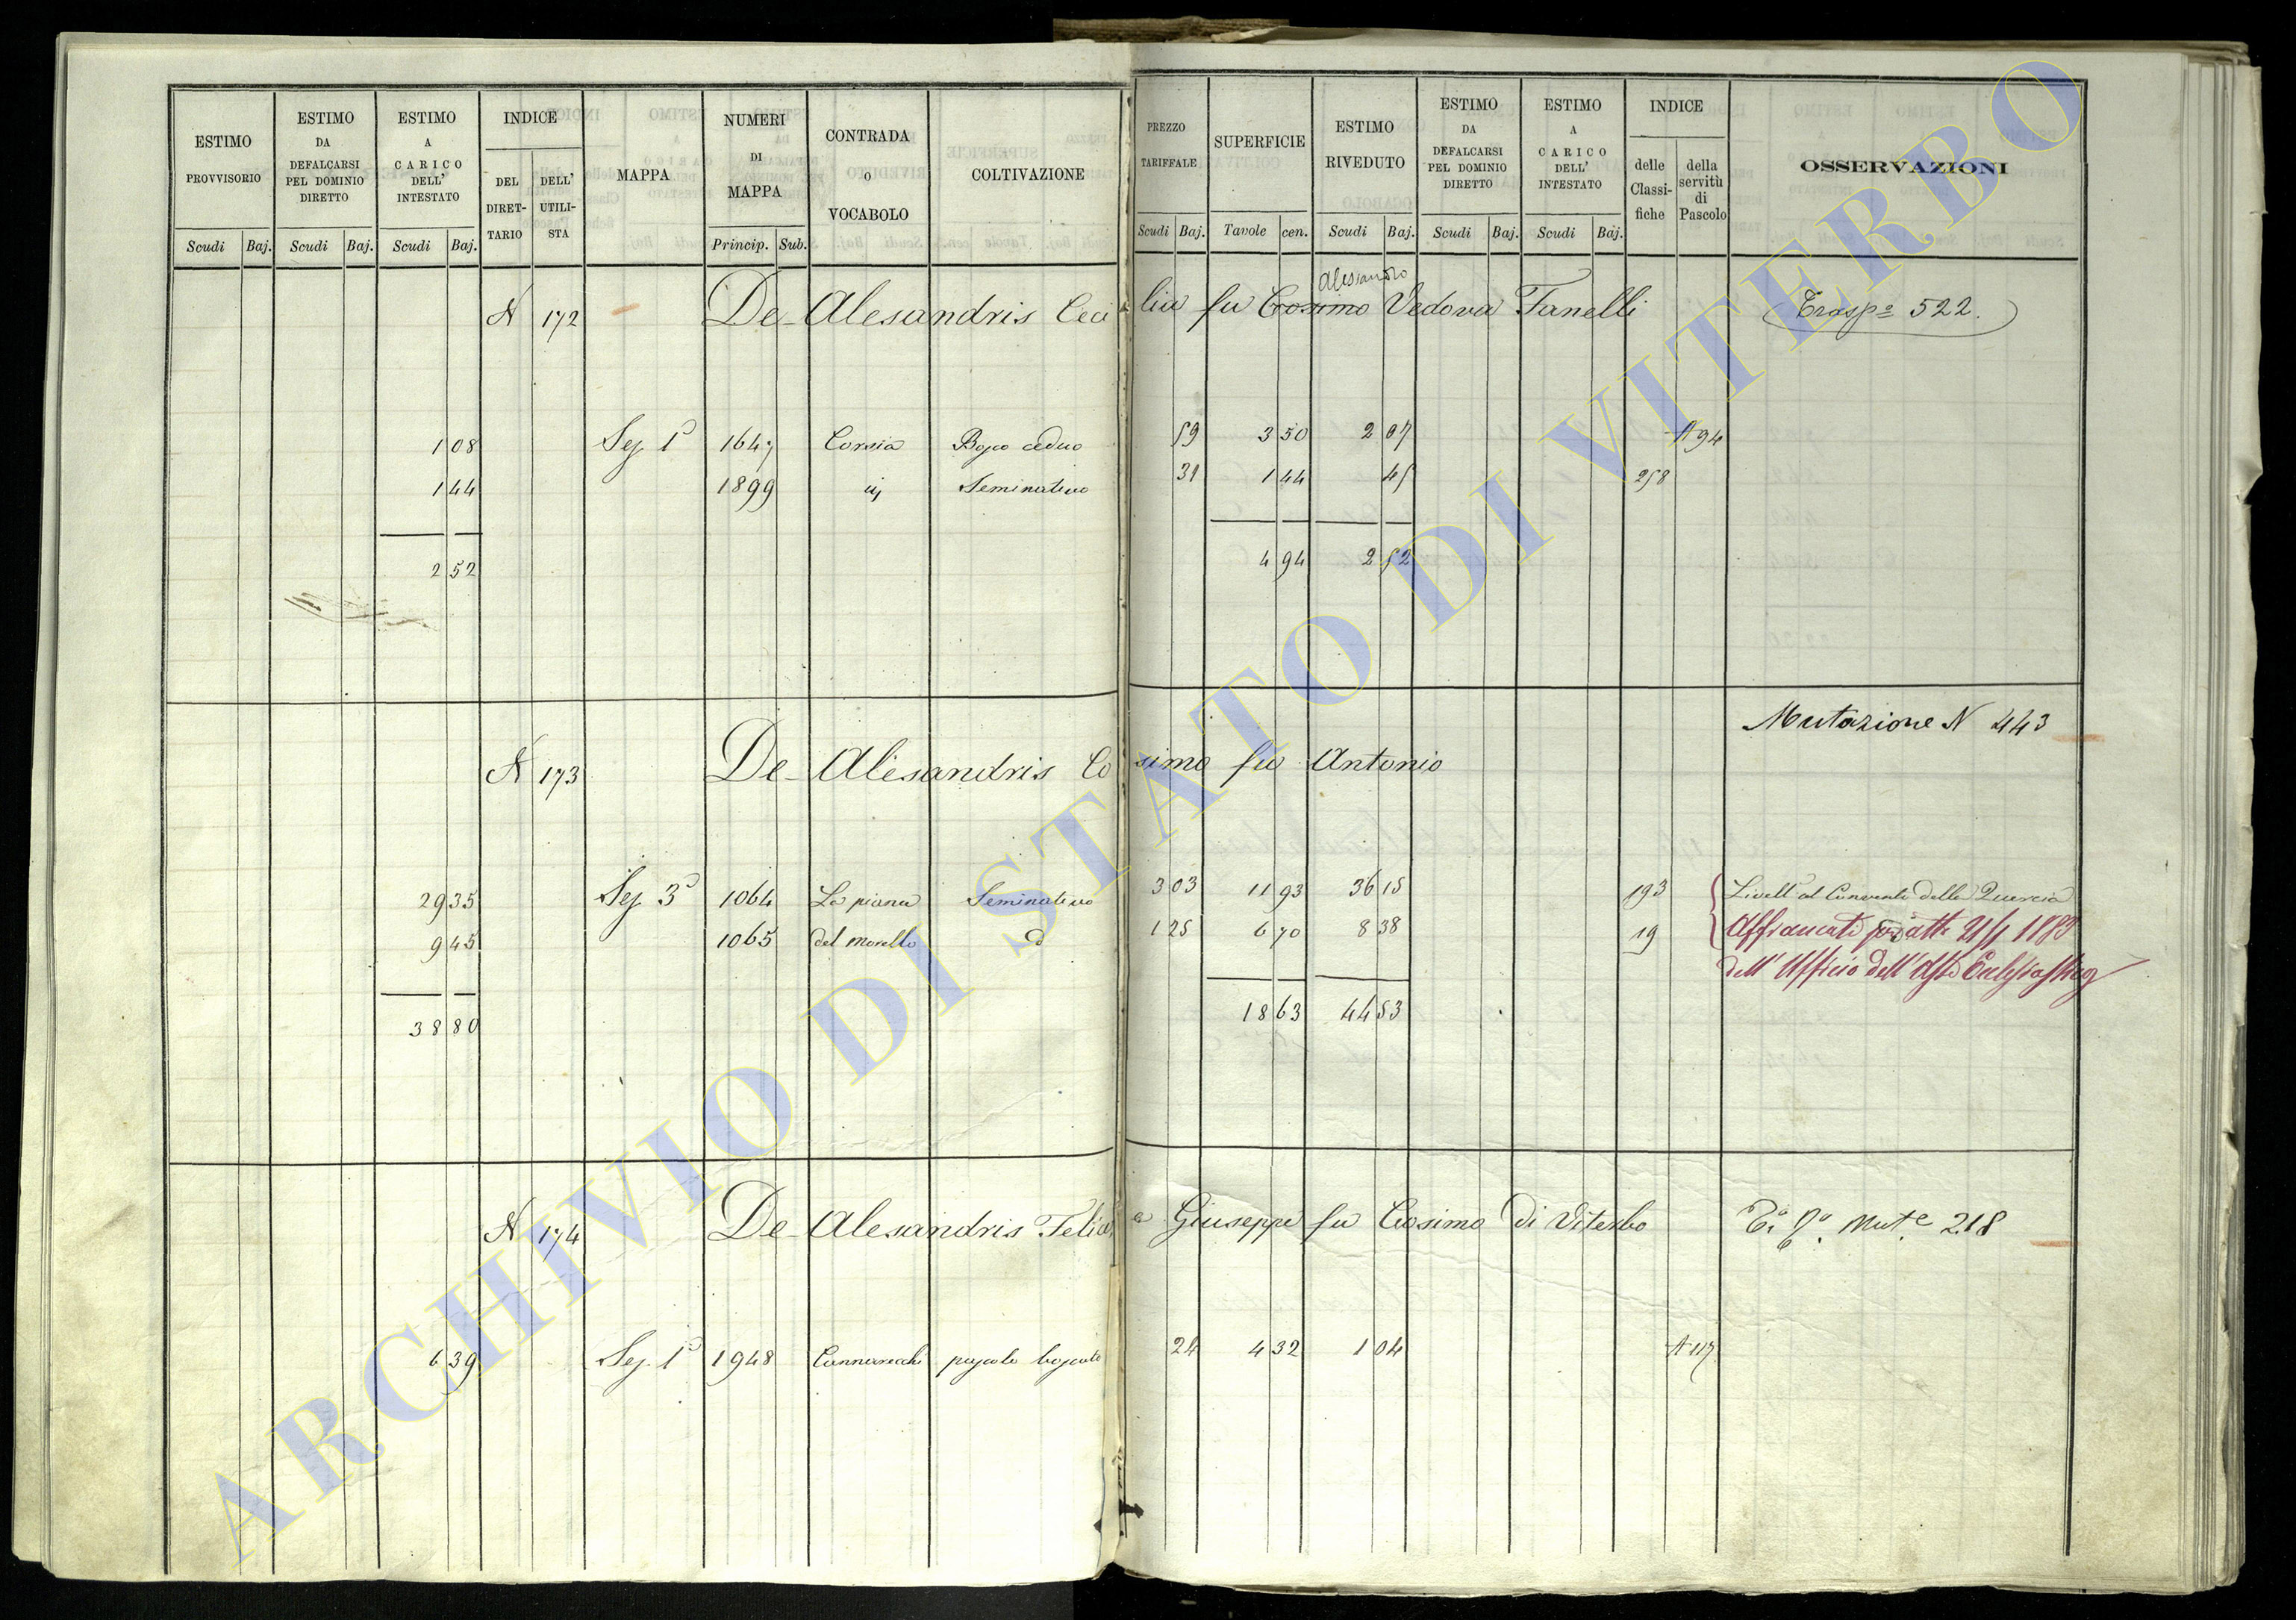 ESTIMO PROVVISORIO
ESTIMO DA DEFALCARSI PEL DOMINIO DIRETTO
ESTIMO A CARICO DELL' INTESTATO
INDICE
DEL DIRET-TARIO
DELL' UTILI-STA
MAPPA
NUMERI DI MAPPA
CONTRADA O VOCABOLO
COLTIVAZIONE
PREZZO TARIFFALE
SUPERFICIE
ESTIMO RIVEDUTO
ESTIMO DA DEFALCARSI PEL DOMINIO DIRETTO
ESTIMO A CARICO DELL' INTESTATO
INDICE
delle Classi-fiche
della servitù di Pascolo
OSSERVAZIONI
Scudi Baj. Scudi Baj. Scudi Baj. Princip. Sub. Scudi Baj. Tavole cen. Scudi Baj. Scudi Baj. Scudi Baj.
Alessandro
N 172 De-Alesandris Cecilia fu Cosimo Vedova Fanelli Traspº 522.
1 08 Sez 1ª 1647 Corsia Bosco ceduo 59 3 50 2 07 A 94
1 44 1899 ivi Seminativo 31 1 44 45 258
2 52 4 94 2 52
Mutazione N 443
N 173 De-Alesandris Cosimo fu Antonio
29 35 Sez 3ª 1064 La piana Seminativo 3 03 11 93 36 15 193 Livellº al Convento della Quercia
9 45 1065 del morello id 1 25 6 70 8 38 19 Affrancati per atto 21/1 1883
dell' Ufficio dell' Asse Ecclesiastico
38 80 18 63 44 53
N 174 De-Alesandris Felice Giuseppe fu Cosimo di Viterbo Mut.e 218
6 39 Sez 1ª 1948 pascolo boscato 24 4 32 1 04 A 117
ARCHIVIO DI STATO DI VITERBO